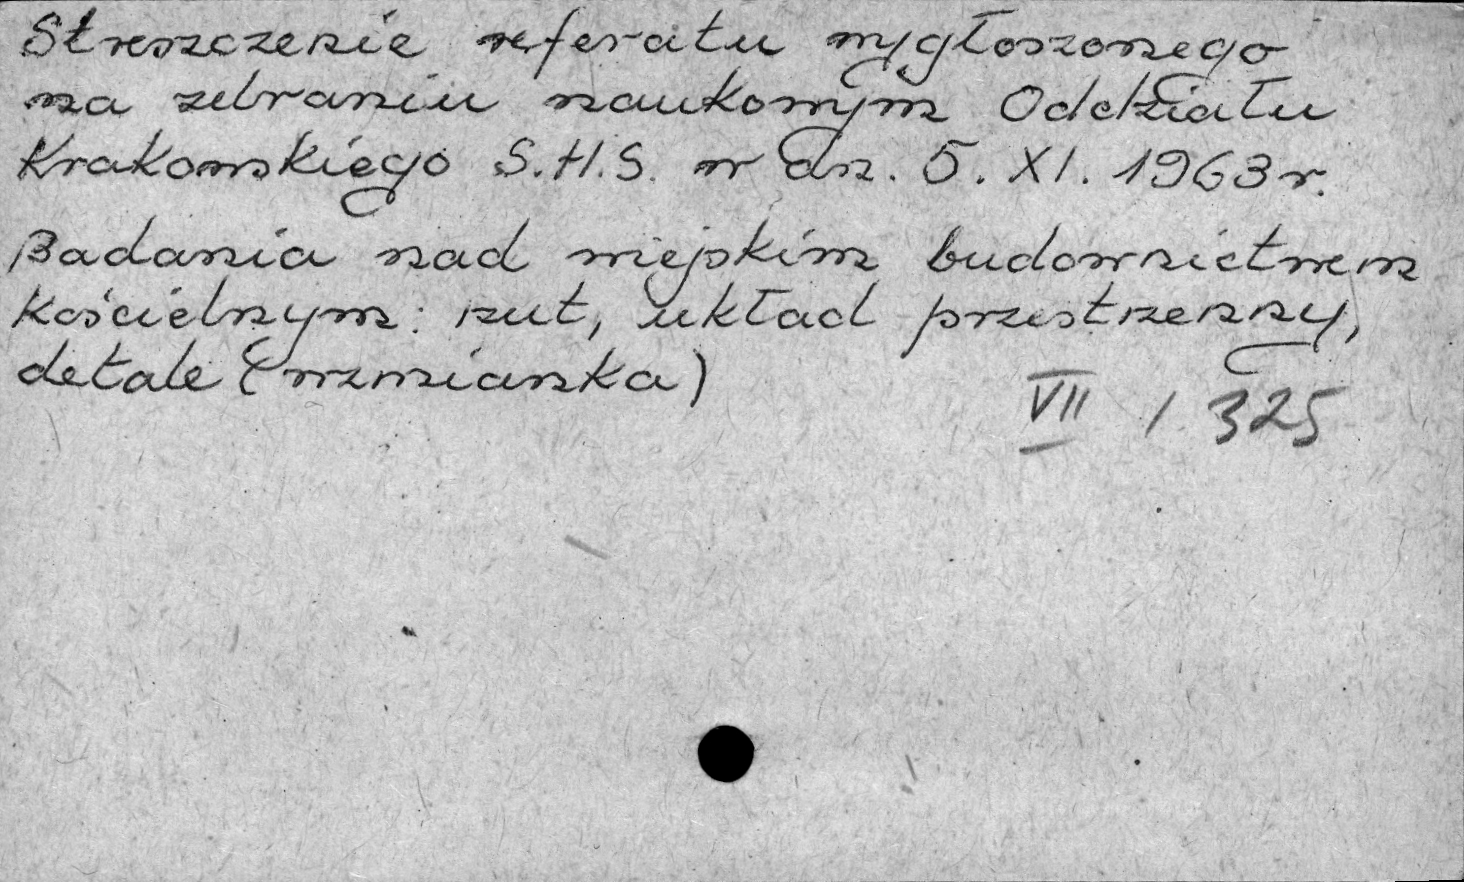 Streszczenie referatu wygłoszonego
na zebraniu naukowym Oddziału
Krakowskiego S.H.S. w dn. 5. XI. 1963 r.
Badania nad wiejskim budownictwem
Kościelnym: rzut, układ przestrzenny,
detale (wzmianka)
VII / 325